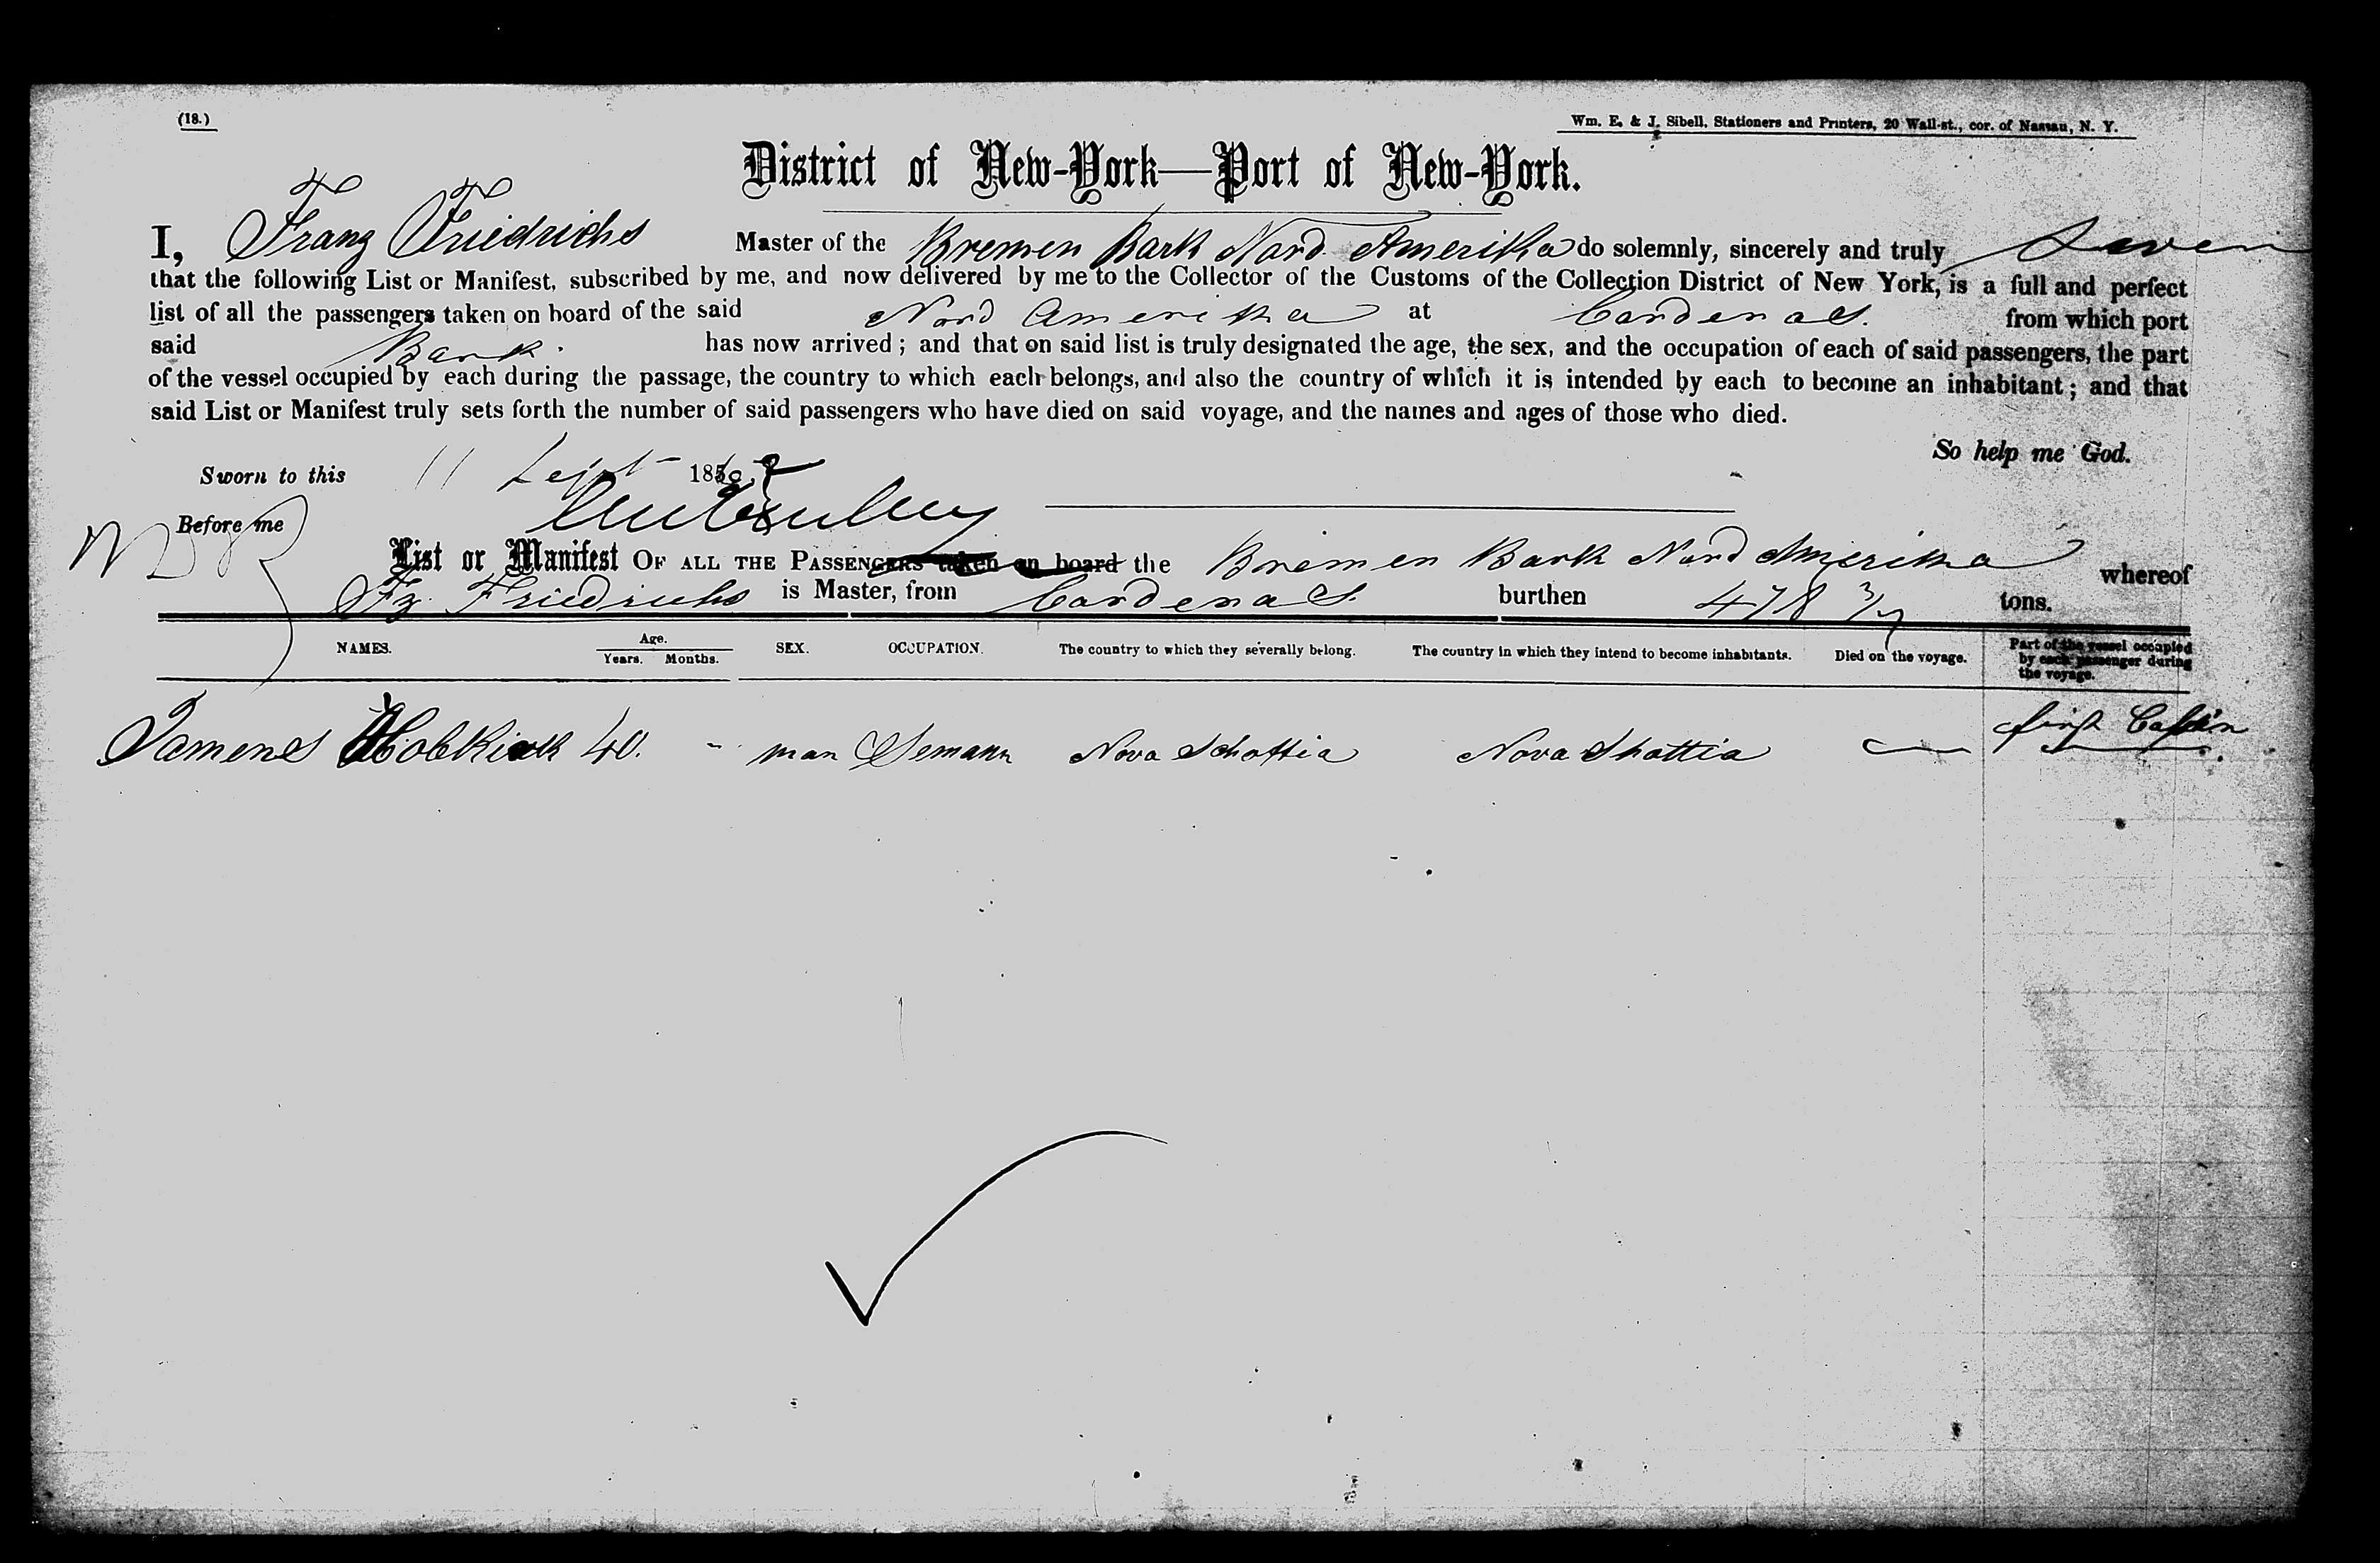 (18.)
Wm. E. & J. Sibell, Stationers and Printers, 20 Wall-st., cor. of Nassau, N. Y.
District of New-York—Port of New-York.
I, Franz Friedrichs Master of the Bremen Bark Nord Amerika do solemnly, sincerely and truly
that the following List or Manifest, subscribed by me, and now delivered by me to the Collector of the Customs of the Collection District of New York, is a full and perfect
list of all the passengers taken on board of the said Nord Amerika at Cardenas. from which port
said Bark. has now arrived; and that on said list is truly designated the age, the sex, and the occupation of each of said passengers, the part
of the vessel occupied by each during the passage, the country to which each belongs, and also the country of which it is intended by each to become an inhabitant; and that
said List or Manifest truly sets forth the number of said passengers who have died on said voyage, and the names and ages of those who died.
So help me God.
Sworn to this 11 Sept 1862
Before me
List or Manifest OF ALL THE PASSENGERS taken on board the Bremen Bark Nord Amerika whereof
Fz. Friedrichs is Master, from Cardenas. burthen 478 tons.
NAMES. Age. Years. Months. SEX. OCCUPATION. The country to which they severally belong. The country in which they intend to become inhabitants. Died on the voyage. Part of the vessel occupied by each passenger during the voyage.
Jamenes 40. man Semann Nova Schottia Nova Shottia — first